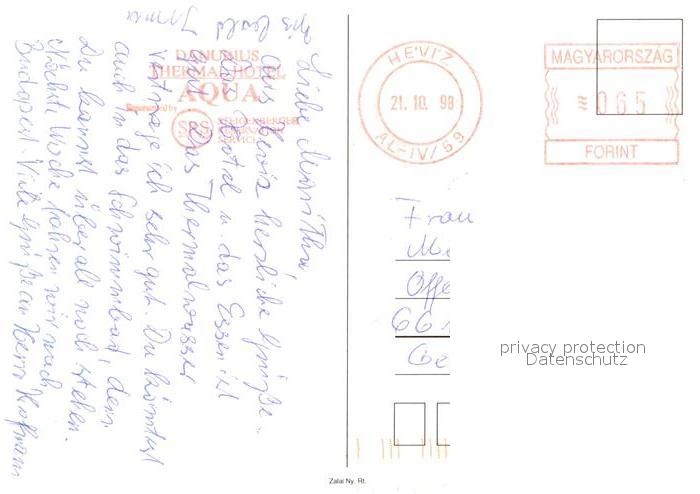 Liebe Marritha
Aus Heviz herzliche Grüße.
Das Hotel u. das Essen ist
gut. Das Thermalwasser
vertrage ich sehr gut. Du könntest
auch in das Schwimmbad, denn
Du kannst überall noch stehen.
Nächste Woche fahren wir nach
Budapest. Viele Grüße an Herrn Hofmann
DANUBIUS
THERMAL HOTEL
AQUA
Represented by
SRS STEIGENBERGER
RESERVATION
SERVICE
HÉVÍZ
21. 10. 98
AL-IV/59
MAGYARORSZÁG
≈065
FORINT
Frau
M
Offe
66
Ge
privacy protection
Datenschutz
Zalai Ny. Rt.